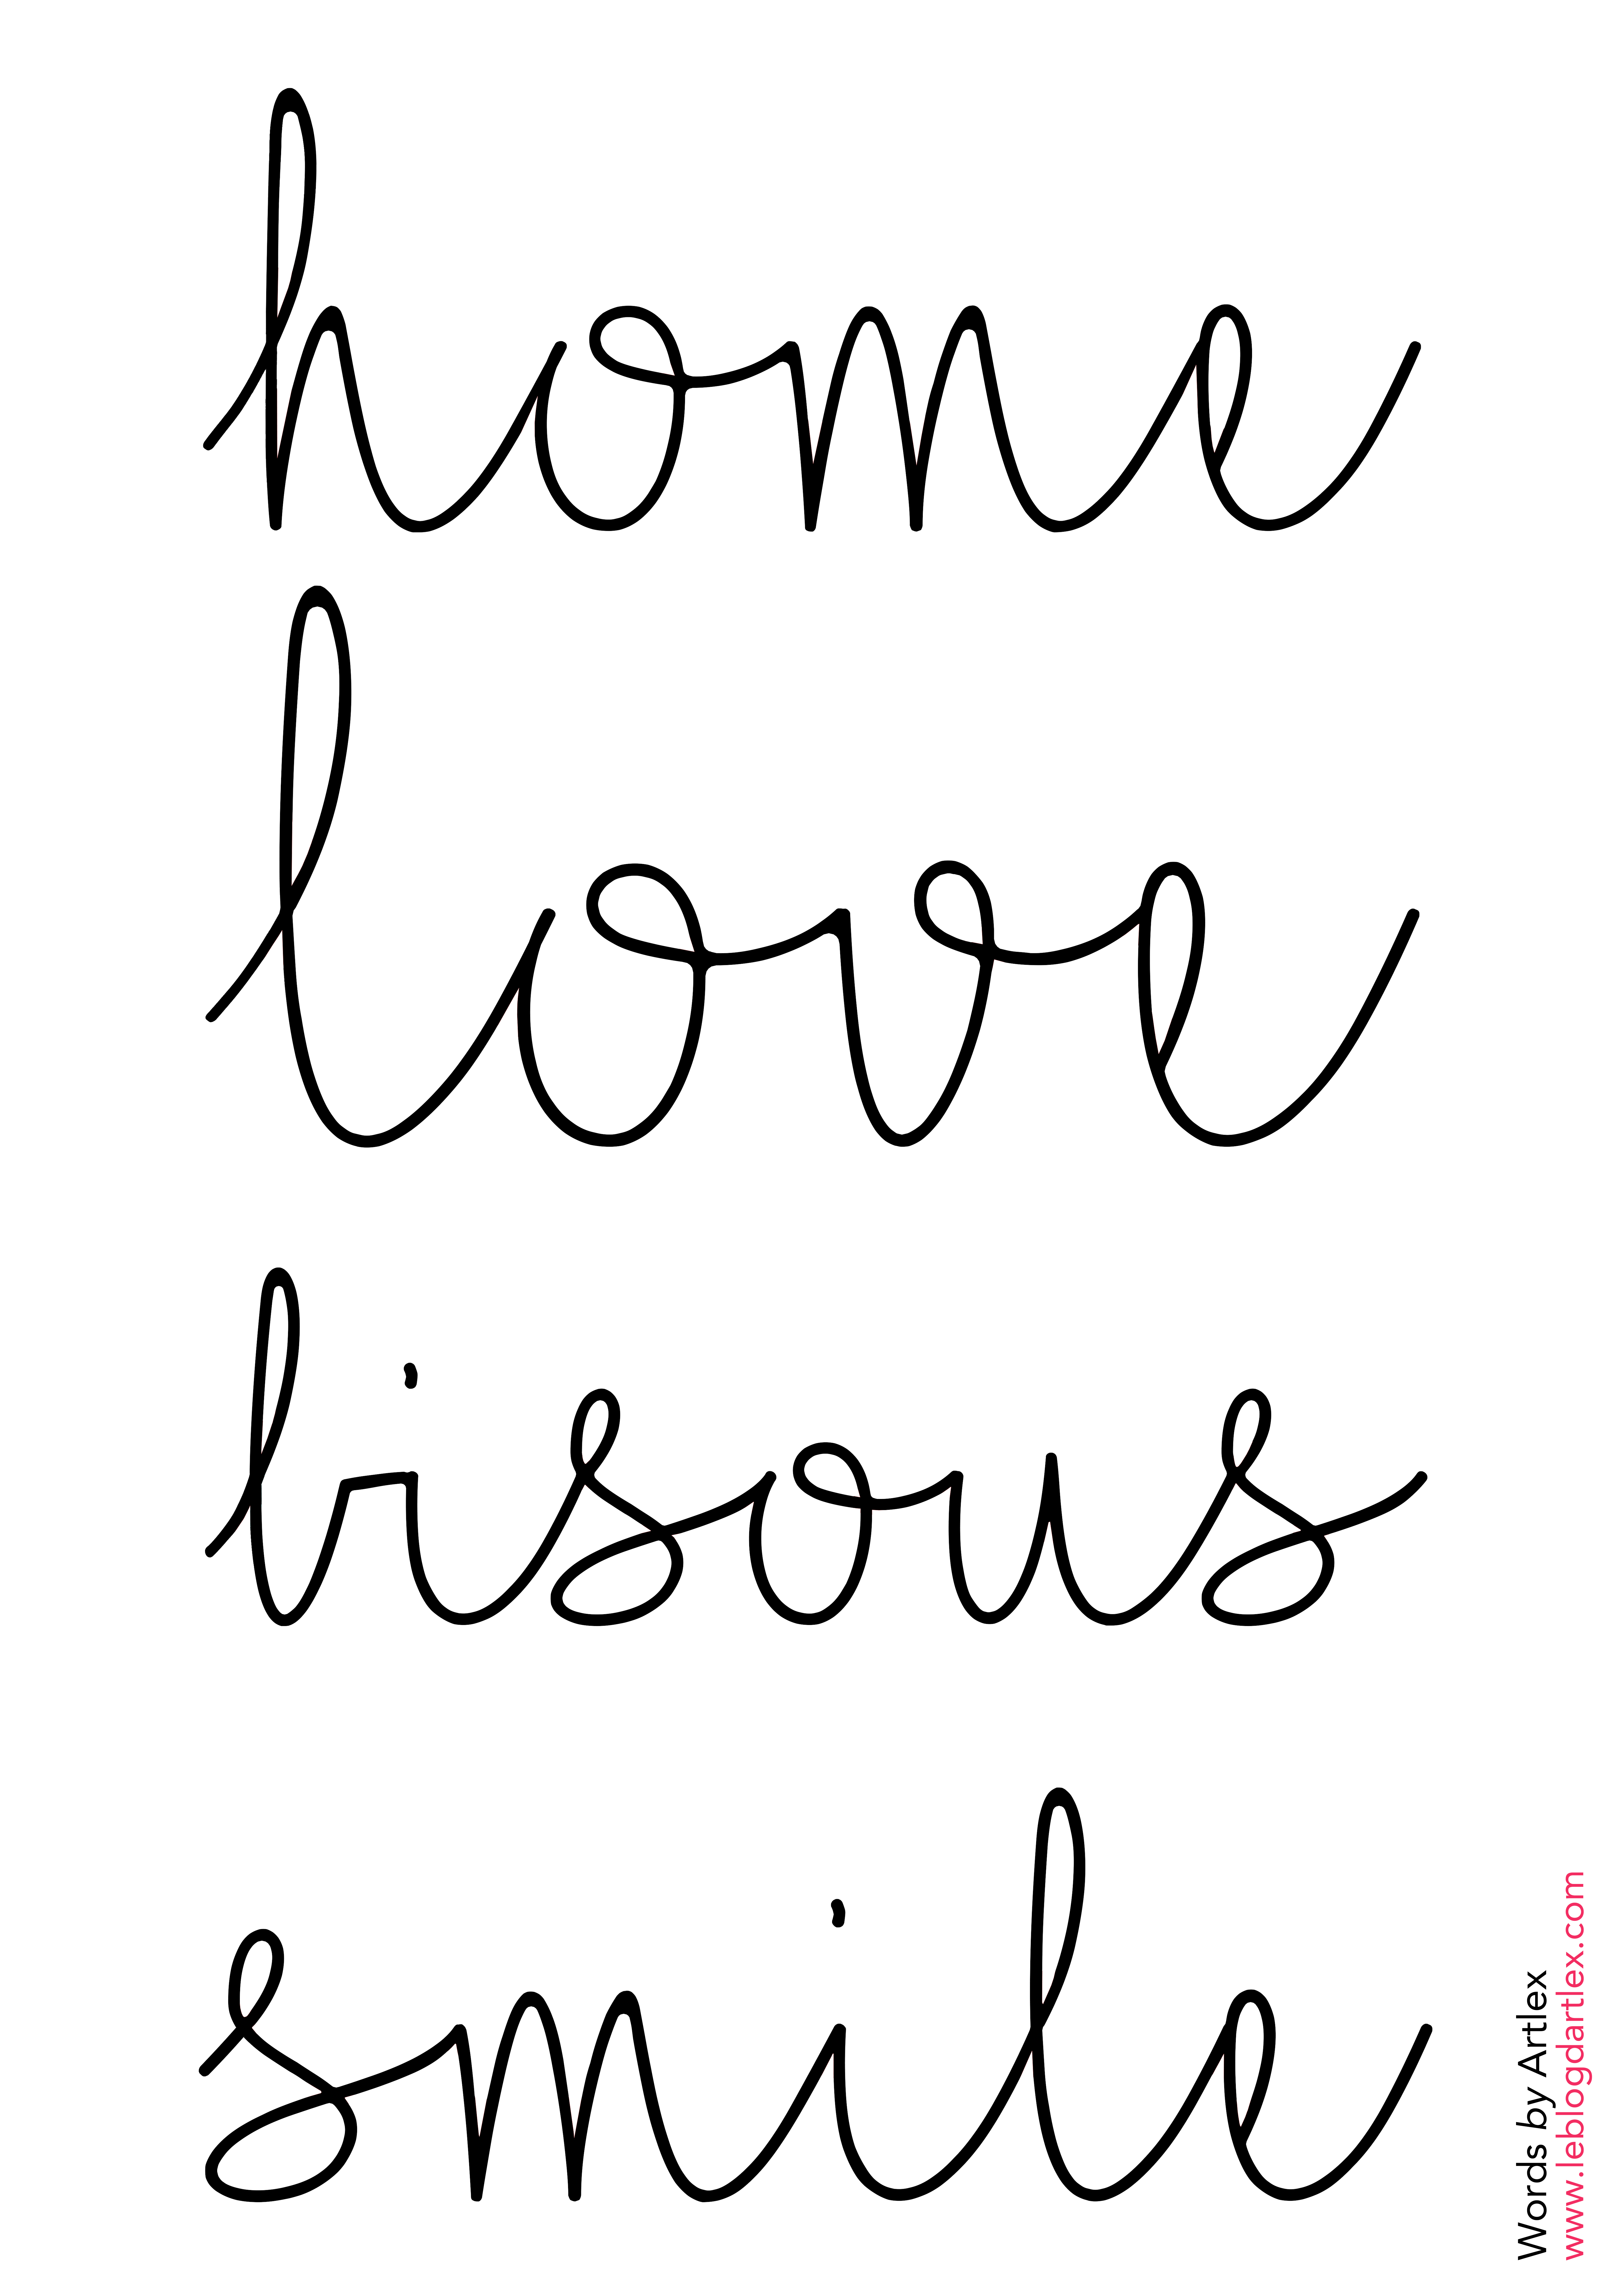 home
love
bisous
smile
Words by Artlex
www.leblogdartlex.com